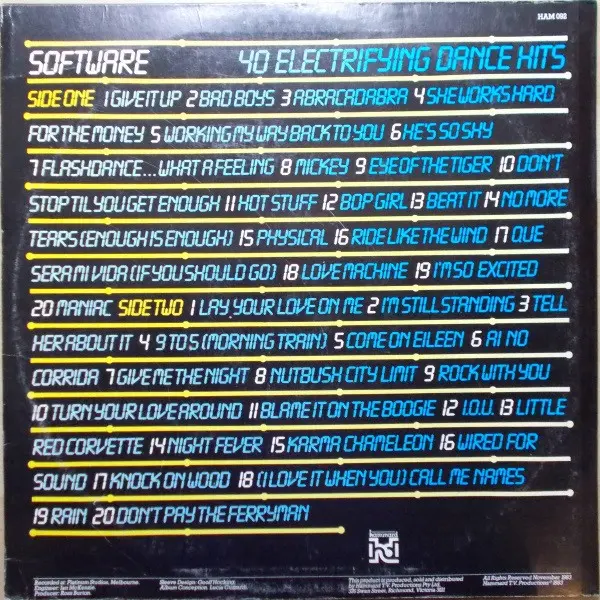 HAM 092
SOFTWARE 40 ELECTRIFYING DANCE HITS
SIDE ONE 1 GIVE IT UP 2 BAD BOYS 3 ABRACADABRA 4 SHE WORKS HARD
FOR THE MONEY 5 WORKING MY WAY BACK TO YOU 6 HE'S SO SHY
7 FLASHDANCE... WHAT A FEELING 8 MICKEY 9 EYE OF THE TIGER 10 DON'T
STOP TIL YOU GET ENOUGH 11 HOT STUFF 12 BOP GIRL 13 BEAT IT 14 NO MORE
TEARS (ENOUGH IS ENOUGH) 15 PHYSICAL 16 RIDE LIKE THE WIND 17 QUE
SERA MI VIDA (IF YOU SHOULD GO) 18 LOVE MACHINE 19 I'M SO EXCITED
20 MANIAC SIDE TWO 1 LAY YOUR LOVE ON ME 2 I'M STILL STANDING 3 TELL
HER ABOUT IT 4 9 TO 5 (MORNING TRAIN) 5 COME ON EILEEN 6 AI NO
CORRIDA 7 GIVE ME THE NIGHT 8 NUTBUSH CITY LIMIT 9 ROCK WITH YOU
10 TURN YOUR LOVE AROUND 11 BLAME IT ON THE BOOGIE 12 I.O.U. 13 LITTLE
RED CORVETTE 14 NIGHT FEVER 15 KARMA CHAMELEON 16 WIRED FOR
SOUND 17 KNOCK ON WOOD 18 (I LOVE IT WHEN YOU) CALL ME NAMES
19 RAIN 20 DON'T PAY THE FERRYMAN
hammard
Recorded at: Platinum Studios, Melbourne.
Engineer: Ian McKenzie.
Producer: Ross Burton.
Sleeve Design: Geoff Hocking.
Album Conception:
This product is produced, sold and distributed
by Hammard T.V. Productions Pty. Ltd.
Swan Street, Richmond, Victoria 3121
All Rights Reserved November 1983
Hammard T.V. Productions 1983